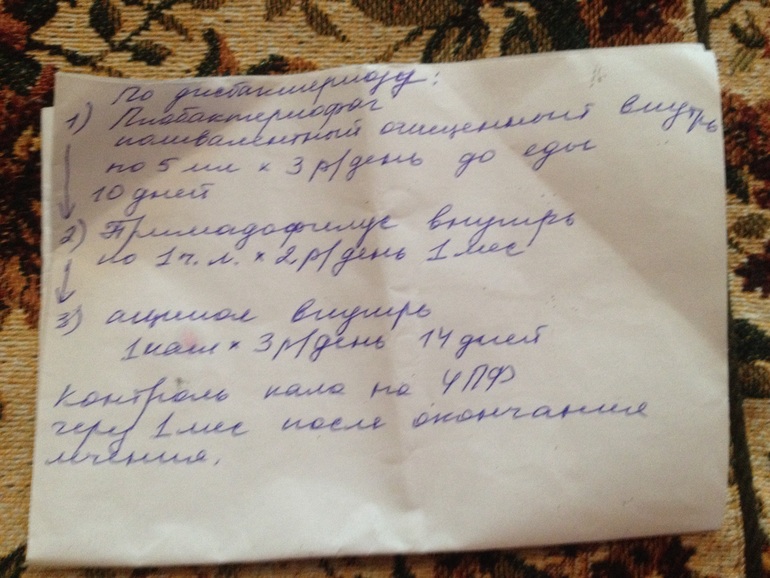 По дисбактериозу:
1) Пиобактериофаг
поливалентный очищенный внутрь
по 5 мл х 3 р/день до еды
10 дней
2) Примадофилус внутрь
по 1 ч. л. х 2 р/день 1 мес
3) аципол внутрь
1 капс х 3 р/день 14 дней
Контроль кала на УПФ
через 1 мес после окончания
лечения.